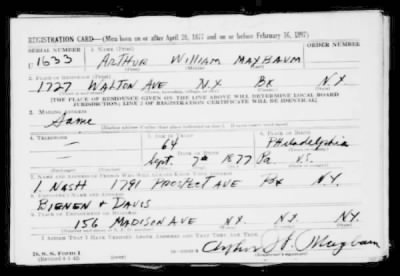 REGISTRATION CARD—(Men born on or after April 28, 1877 and on or before February 16, 1897)
SERIAL NUMBER 1. NAME (Print) ORDER NUMBER
U 1633 ARTHUR WILLIAM MAYBAUM
(First) (Middle) (Last)
2. PLACE OF RESIDENCE (Print)
1727 WALTON AVE N.Y. BX N.Y.
[THE PLACE OF RESIDENCE GIVEN ON THE LINE ABOVE WILL DETERMINE LOCAL BOARD
JURISDICTION; LINE 2 OF REGISTRATION CERTIFICATE WILL BE IDENTICAL]
3. MAILING ADDRESS
Same
4. TELEPHONE 5. AGE IN YEARS 6. PLACE OF BIRTH
— 64 PHiladelphia
DATE OF BIRTH
Sept. 7th 1877 Pa U.S.
7. NAME AND ADDRESS OF PERSON WHO WILL ALWAYS KNOW YOUR ADDRESS
I. NASH 1791 PROSPECT AVE BX N.Y.
8. EMPLOYER'S NAME AND ADDRESS
BIENEN & DAVIS
9. PLACE OF EMPLOYMENT OR BUSINESS
156 MADISON AVE N.Y. N.Y. N.Y.
I AFFIRM THAT I HAVE VERIFIED ABOVE ANSWERS AND THAT THEY ARE TRUE.
D. S. S. Form 1
(Revised 4-1-42)
Arthur W. Maybaum